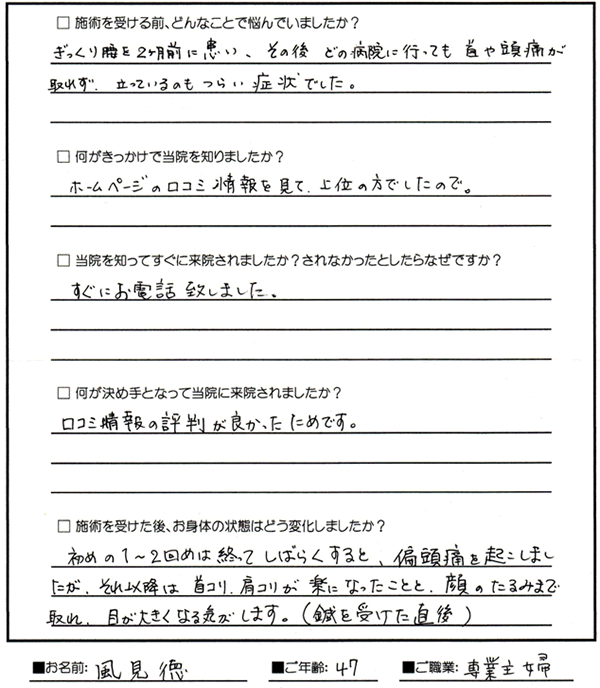 □ 施術を受ける前、どんなことで悩んでいましたか?
ぎっくり腰を2ヶ月前に患い、その後 どの病院に行っても 首や頭痛が
取れず、立っているのもつらい症状でした。
□ 何がきっかけで当院を知りましたか?
ホームページの口コミ情報を見て、上位の方でしたので。
□ 当院を知ってすぐに来院されましたか?されなかったとしたらなぜですか?
すぐにお電話致しました。
□ 何が決め手となって当院に来院されましたか?
口コミ情報の評判が良かったためです。
□ 施術を受けた後、お身体の状態はどう変化しましたか?
初めの1～2回めは終ってしばらくすると、偏頭痛を起こしまし
たが、それ以降は首コリ、肩コリが楽になったことと、顔のたるみまで
取れ、目が大きくなる気がします。(鍼を受けた直後)
■お名前: 風見徳 ■ご年齢: 47 ■ご職業: 専業主婦